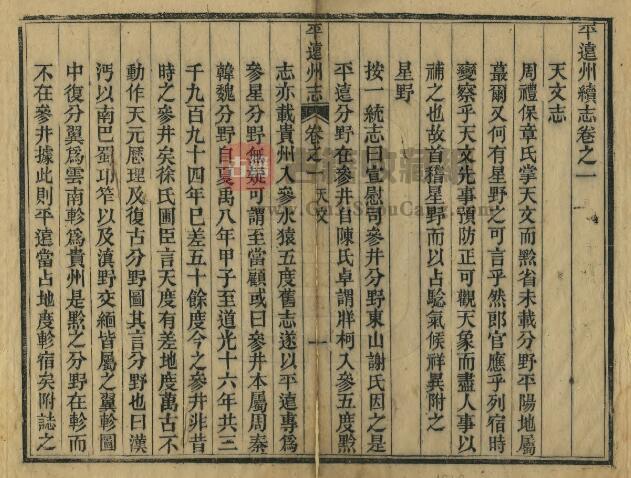 平遠州續志卷之一
天文志
周禮保章氏掌天文而黔省未載分野平陽地屬
蕞爾又何有星野之可言乎然郎官應乎列宿時
變察乎天文先事預防正可觀天象而盡人事以
補之也故首稽星野而以占驗氣候祥異附之
星野
按一統志曰宣慰司參井分野東山謝氏因之是
平遠分野在參井自陳氏卓謂牂柯入參五度黔
平遠州志 卷之一 天文 一
志亦載貴州入參水猿五度舊志遂以平遠專爲
參星分野無疑可謂至當顧或曰參井本屬周秦
韓魏分野自夏禹八年甲子至道光十六年共三
千九百九十四年巳差五十餘度今之參井非昔
時之參井矣徐氏圃臣言天度有差地度萬古不
動作天元厯理及復古分野圖其言分野也曰漢
沔以南巴蜀邛笮以及滇野交緬皆屬之翼軫圖
中復分翼爲雲南軫爲貴州是黔之分野在軫而
不在參井據此則平遠當占地度軫宿矣附誌之
古籍收藏